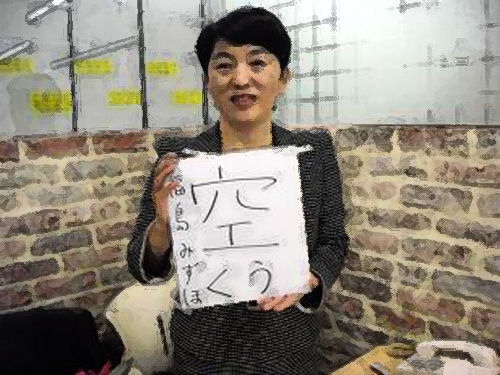 空
くう
福島みずほ